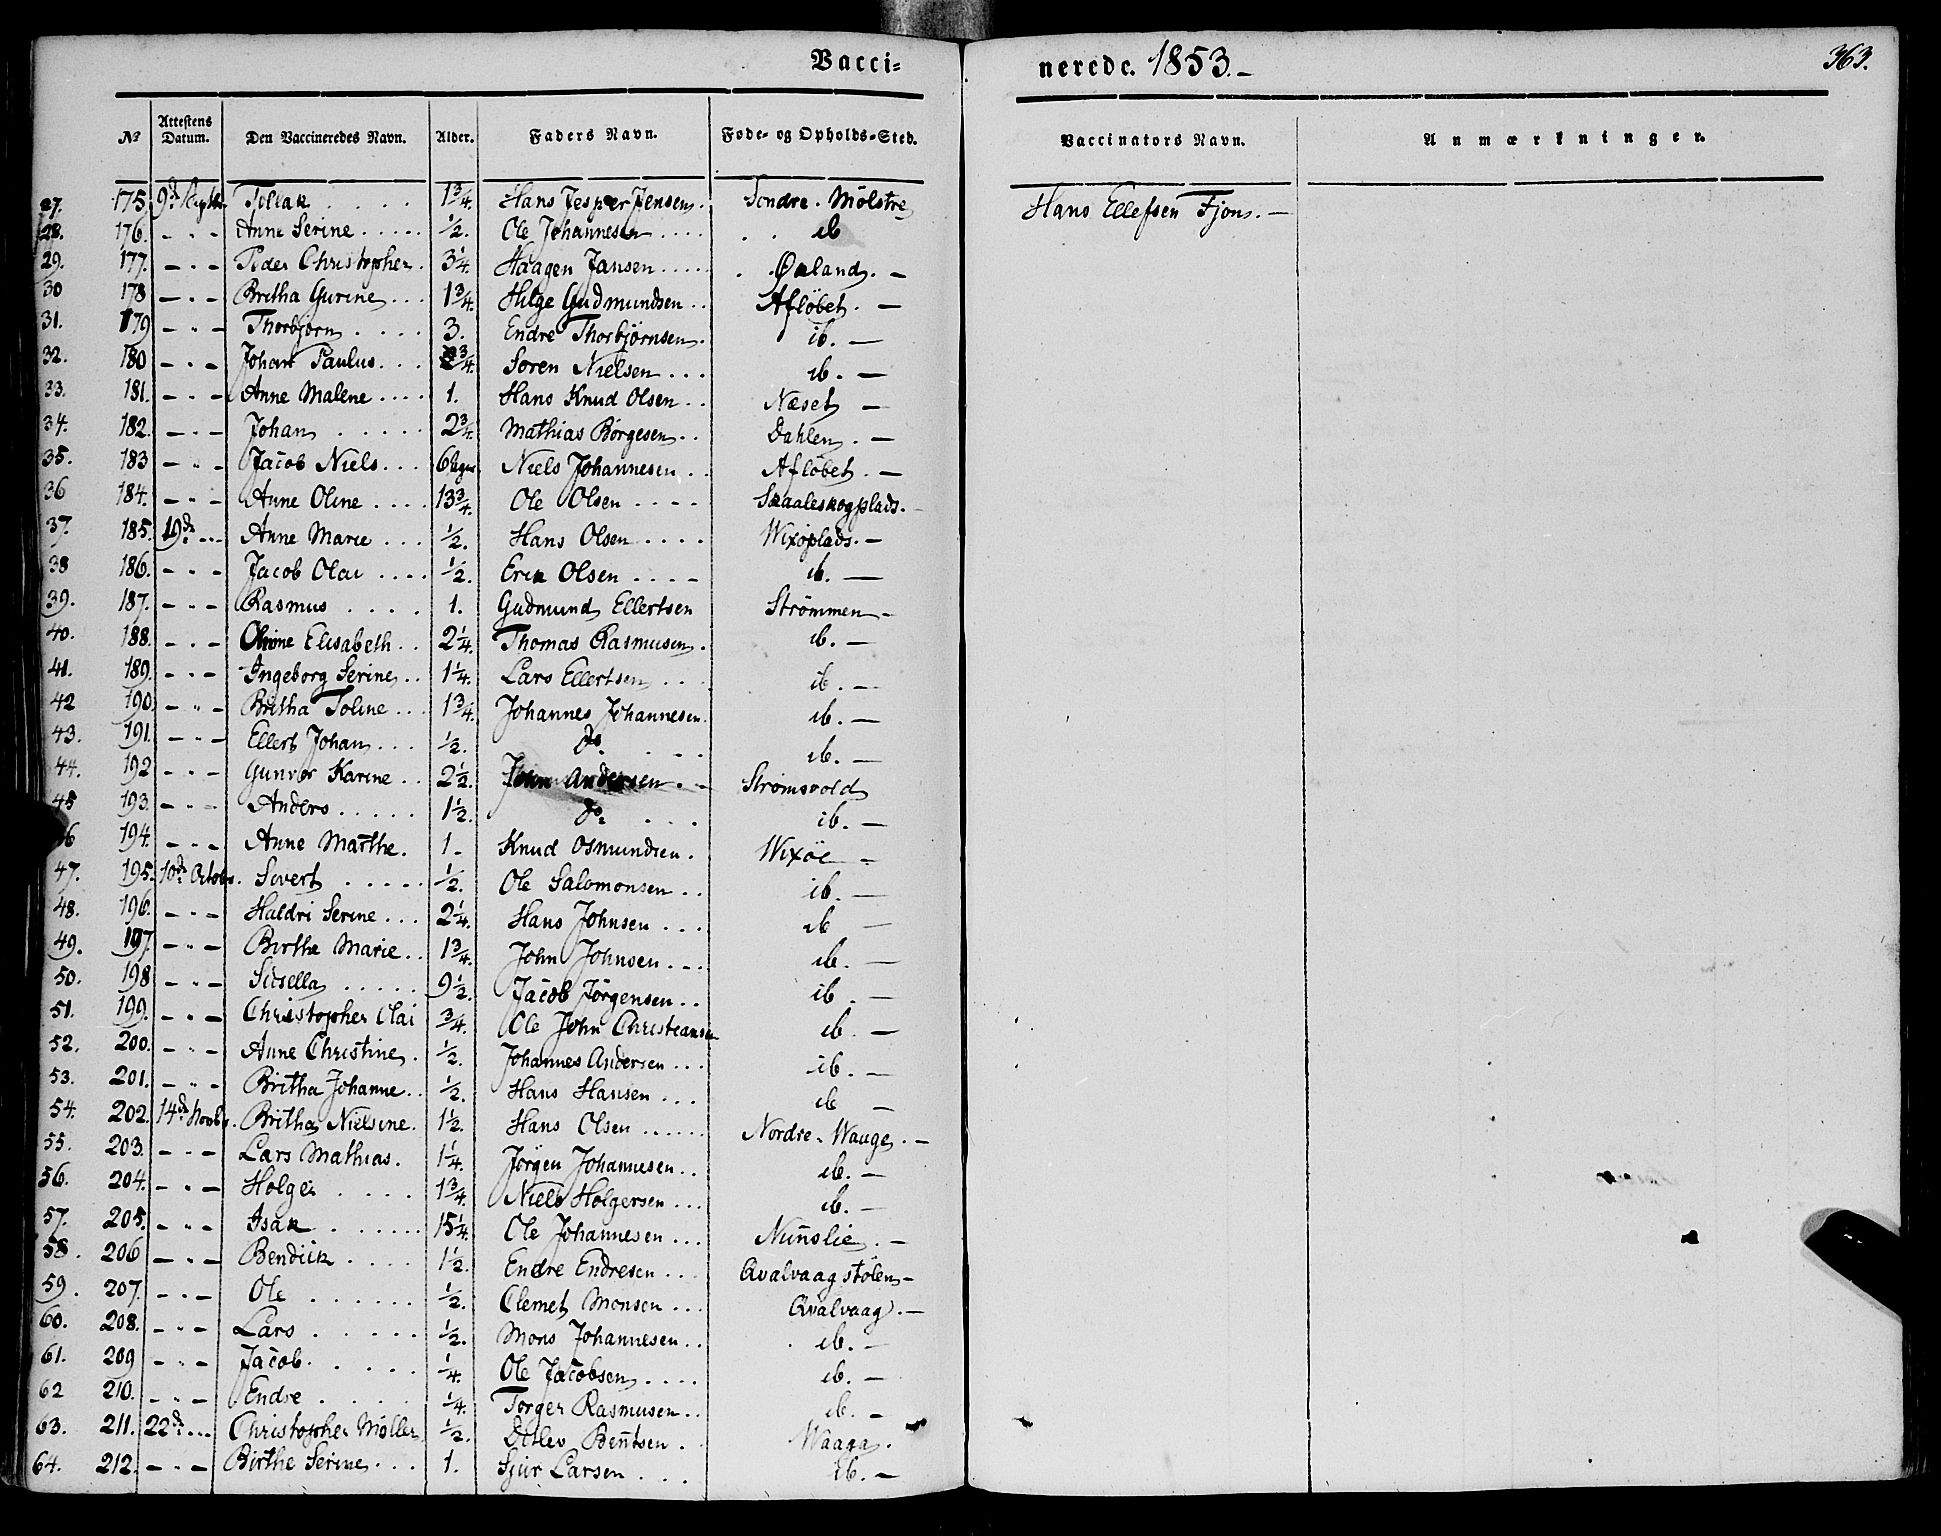 Vacci=
nerede. 1853.-
363.
No Attestens Datum. Den Vaccineredes Navn. Alder. Faders Navn. Føde- og Opholds-Sted. Vaccinators Navn. Anmærkninger.
27. 175. 9de Septbr Tollak . . . . 1 3/4. Hans Jesper Jensen. Søndre. Mølstre Hans Ellefsen Fjon. -
28. 176. - " - Anne Serine . . . . . 1/2. Ole Johannesen . . . . ib
29. 177. - " - Peder Christopher . 3 1/4. Haagen Jansen . . . . . Økland. -
30 178 - " - Britha Gurine . . . 1 3/4. Helge Gudmundsen . . Afløbet. -
31. 179 - " - Thorbjørn . . . . 3. Endre Thorbjørnsen. ib. -
32. 180 - " - Johan Paulus. . . 3/4. Søren Nielsen . . . ib. -
33. 181. - " - Anne Malene . . . . 1. Hans Knud Olsen . . Næset -
34. 182. - " - Johan . . . . . 2 3/4. Mathias Børgesen . . Dahlen. -
35. 183 - " - Jacob Niels . . . 6 Uger Niels Johannesen . . Afløbet. -
36 184. - " - Anne Oline . . . . 13 3/4. Ole Olsen . . . . Skaaleskogplads. -
37. 185. 19de . . . Anne Marie . . . 1/2. Hans Olsen . . . . Wixøplads. -
38 186. - " - Jacob Olai . . . . 1/2. Erik Olsen . . . . ib. -
39. 187. - " - Rasmus . . . . 1. Gudmund Ellertsen Strømmen -
40. 188. - " - Elisabeth . . 2 1/4. Thomas Rasmusen. ib. -
41. 189. - " - Ingeborg Serine . . 1 1/4. Lars Ellertsen . . . ib. -
42 190. - " - Britha Toline . . . 1 3/4. Johannes Johannesen. ib. -
43. 191. - " - Ellert Johan . . . 1/2. do . . . ib. -
44. 192 - " - Gunvor Karine . . 2 1/2. John Andersen. - Strømsvold
45 193. - " - Anders . . . . . 1 1/2. do . . . ib. -
46 194. - " - Anne Marthe. 1. - Knud Osmundsen . Wixøe -
47. 195. 10de Octobr. Sivert . . . . . 1/2. Ole Salomonsen . . ib. -
48. 196. - " - Haldri Serine . . . 2 1/4. Hans Johnsen . . . ib -
49. 197. - " - Birthe Marie . . 1 3/4. John Johnsen . . . ib. -
50. 198 - " - Sidsella . . . . . 9 1/2. Jacob Jørgensen . . ib. -
51. 199. - " - Christopher Olai 3/4. Ole John Christiansen ib. -
52. 200. - " - Anne Christine . 1/2. Johannes Andersen . . . ib. -
53. 201. - " - Britha Johanne . . 1/2. Hans Hansen . . . ib -
54. 202. 14de Novbr. Britha Nielsine . 1 1/2. Hans Olsen . . . . . . Nordre. Wauge. -
55. 203. - " - Lars Mathias. 1 1/4. Jørgen Johannesen . . ib. -
56. 204. - " - Holger . . . . 1 3/4. Niels Holgersen . . . ib. -
57. 205. - " - Isak . . . . . . 15 1/4. Ole Johannesen . . . Nunslie. -
58. 206 - " - Bendick . . . . 1 1/2. Endre Endresen . . . Qvalvaagstølen -
59. 207. - " - Ole . . . . . . 1/2. Clemet Monsen . . . Qvalvaag. -
60. 208. - " - Lars . . . . . 1/2. Mons Johannesen . . ib. -
61. 209 - " - Jacob. . . . . 1/4. Ole Jacobsen . . . . ib. -
62 210. - " - Endre . . . . . 1/4. Torger Rasmusen . . ib. -
63. 211. 22de . . . Christopher Møller 1/2. Ditlev Bentsen . Waaga.
64. 212. - " - Birthe Serine . . . 1. Sjur Larsen . . . ib. -